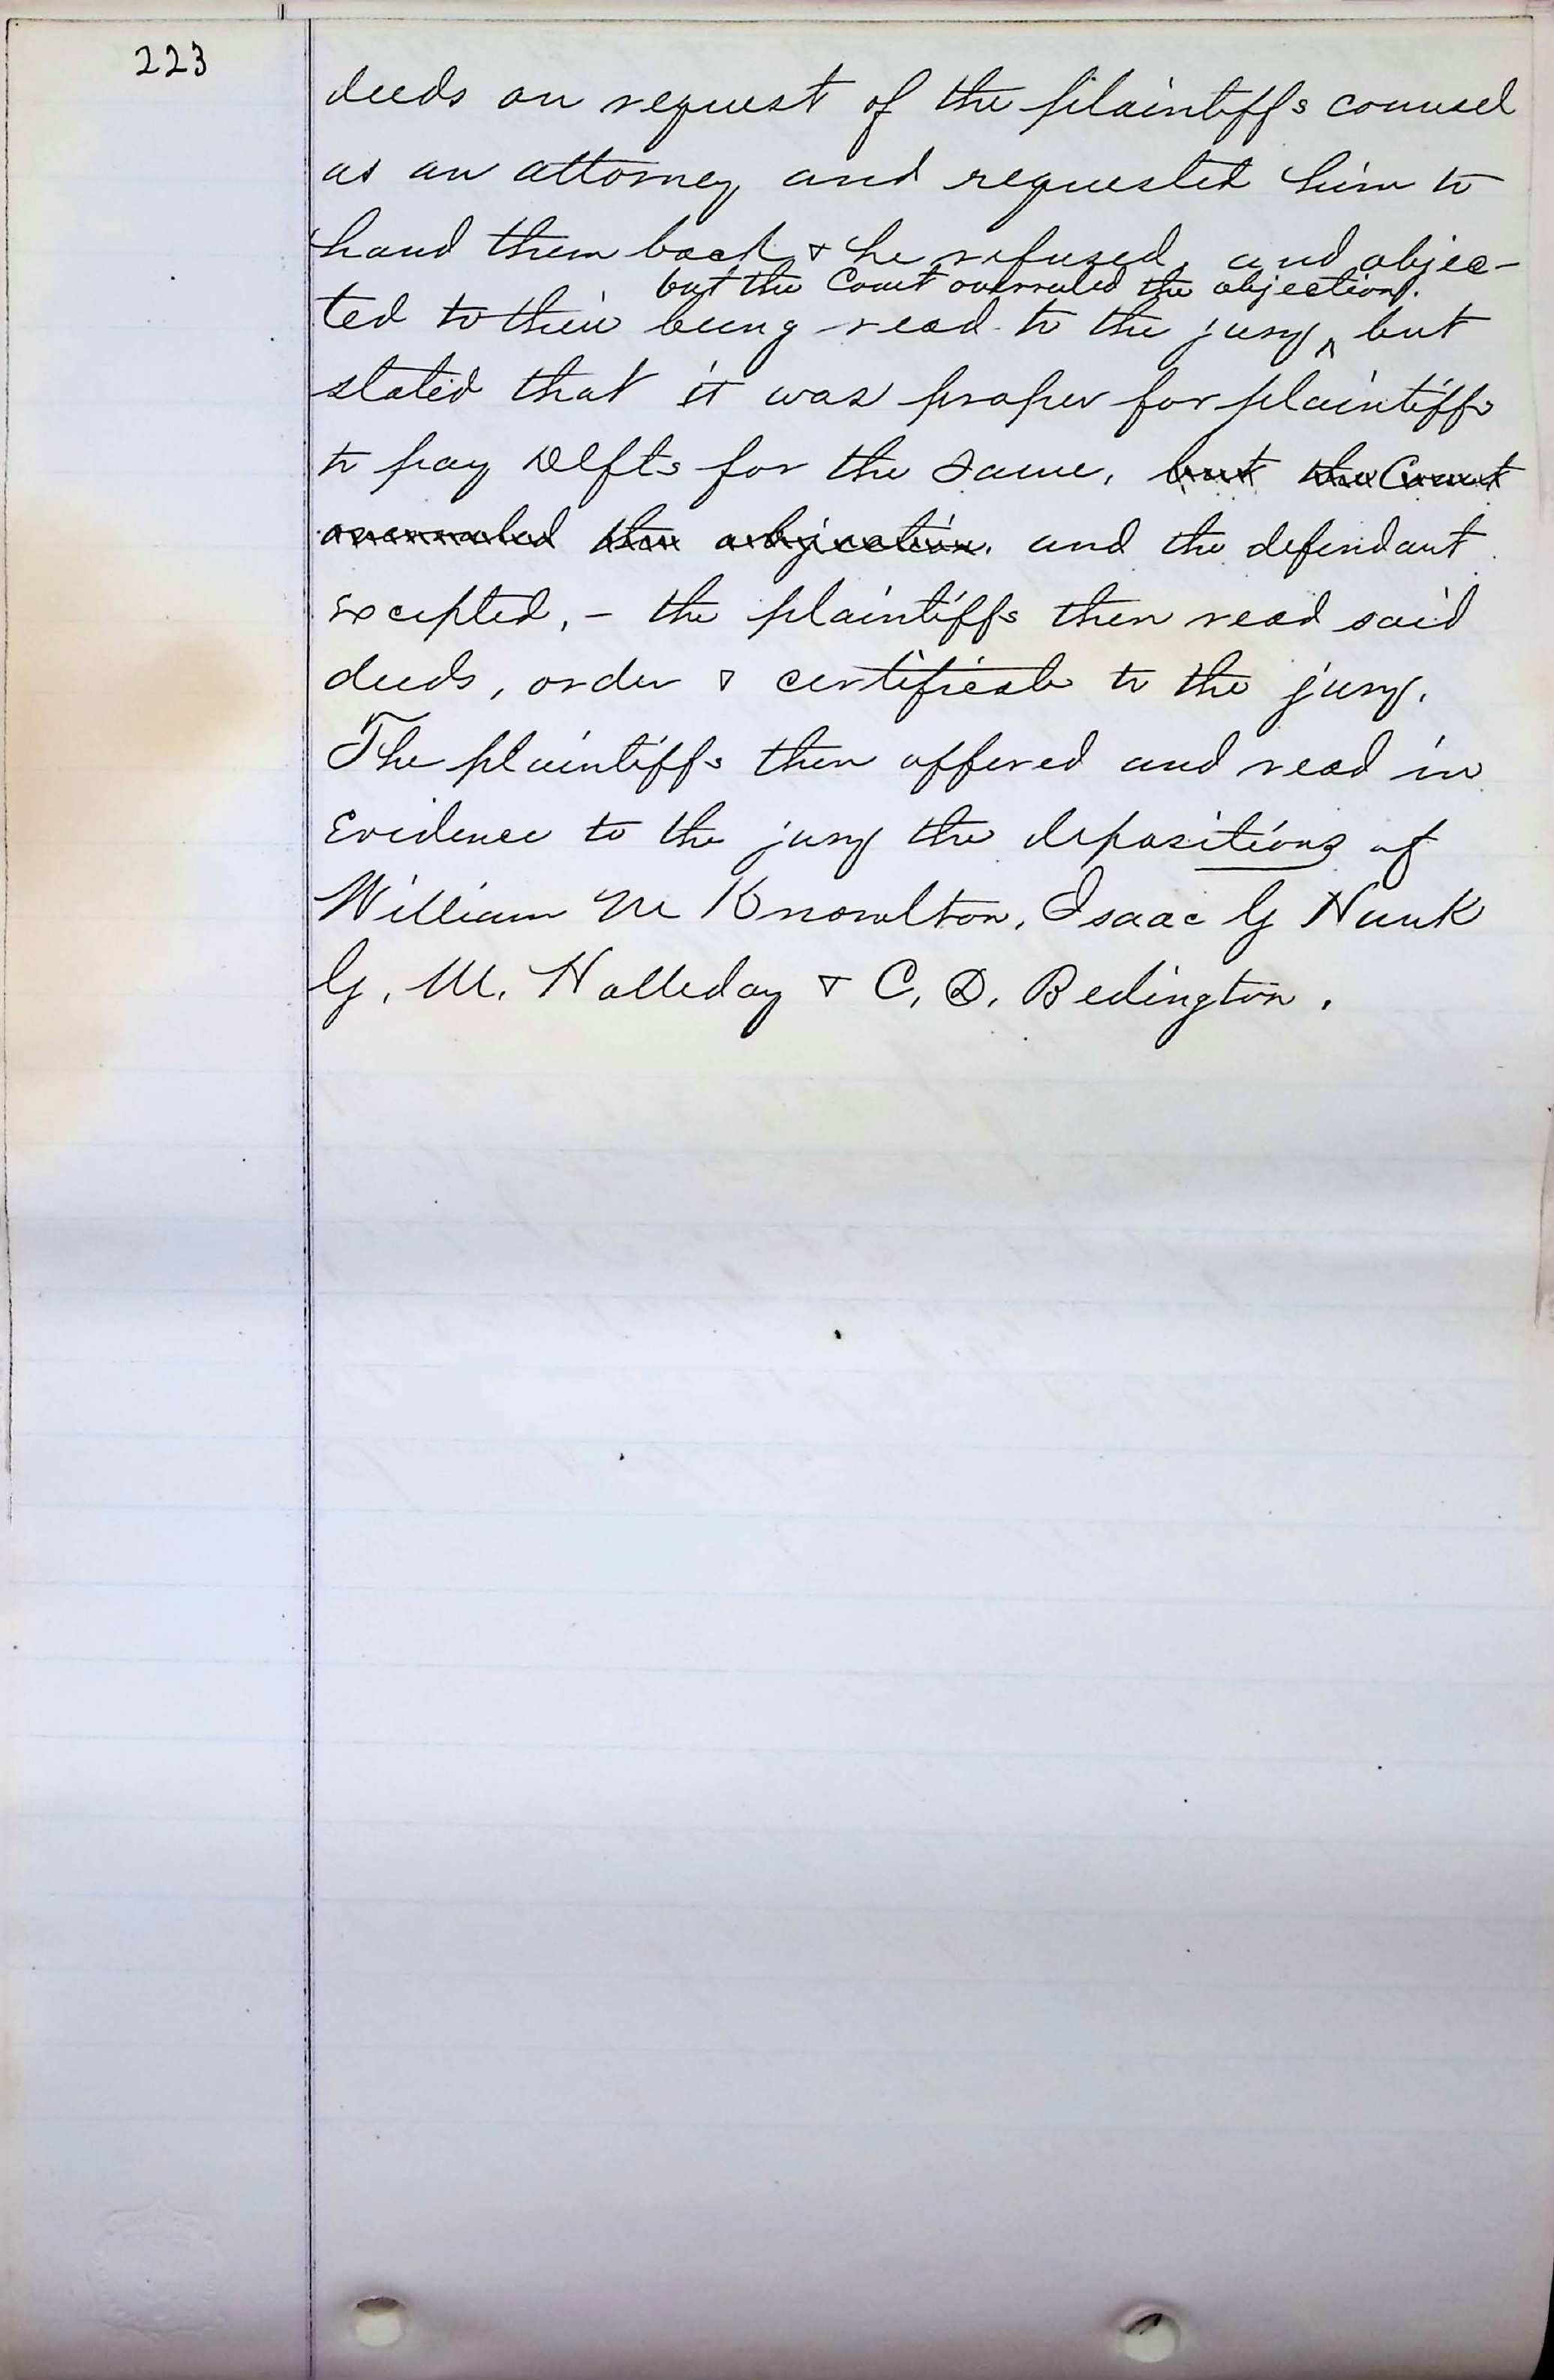 223
deeds on request of the plaintiffs counsel
as an attorney and requested him to
hand them back & he refused, and objec-
but the Court overruled the objection.
ted to their being read to the jury ^ but
stated that it was proper for plaintiffs
to pay Defts for the same, but the Court
overruled the objection. and the defendant
excepted, - the plaintiffs then read said
deeds, order & certificate to the jury.
The plaintiffs then offered and read in
Evidence to the jury the depositions of
William M Knowlton, Isaac G Hunk
G. M. Halleday & C. D. Bedington.